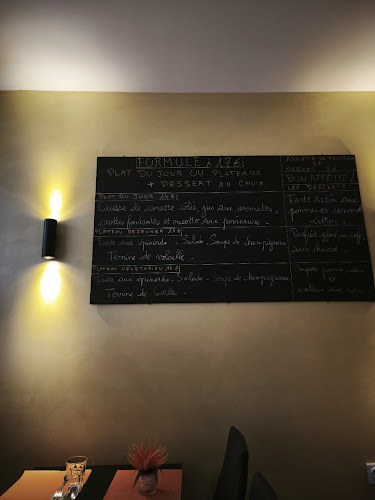 FORMULE à 17€
PLAT DU JOUR OU PLATEAUX
+ DESSERT AU CHOIX
PLAT DU JOUR 14€
Cuisse de canette rôtie, jus aux aromates,
carottes fondantes et risotto aux
PLATEAU DEJEUNER 14€
Tarte aux épinards - Salade - Soupe de champignons
Terrine de volaille
PLATEAU VEGETARIEN 14€
Tarte aux épinards - Salade - Soupe de champignons
Terrine de lentilles -
ASSIETTE DE FROMAGES
DESSERT 5€
BON APPETIT!
LES DESSERTS
Tarte tatin aux
pommes et caramel
Parfait glacé au café,
sauce
Compote pomme
et